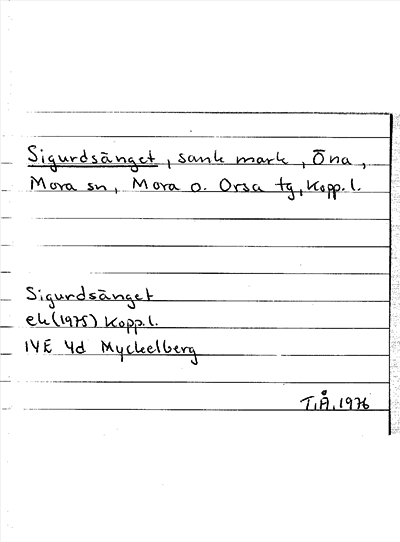 Sigurdsänget, sank mark, Öna,
Mora sn, Mora o. Orsa tg, Kopp. l.
Sigurdsänget
ek (1975) Kopp. l.
14E 4d Myckelberg
T.Å. 1976